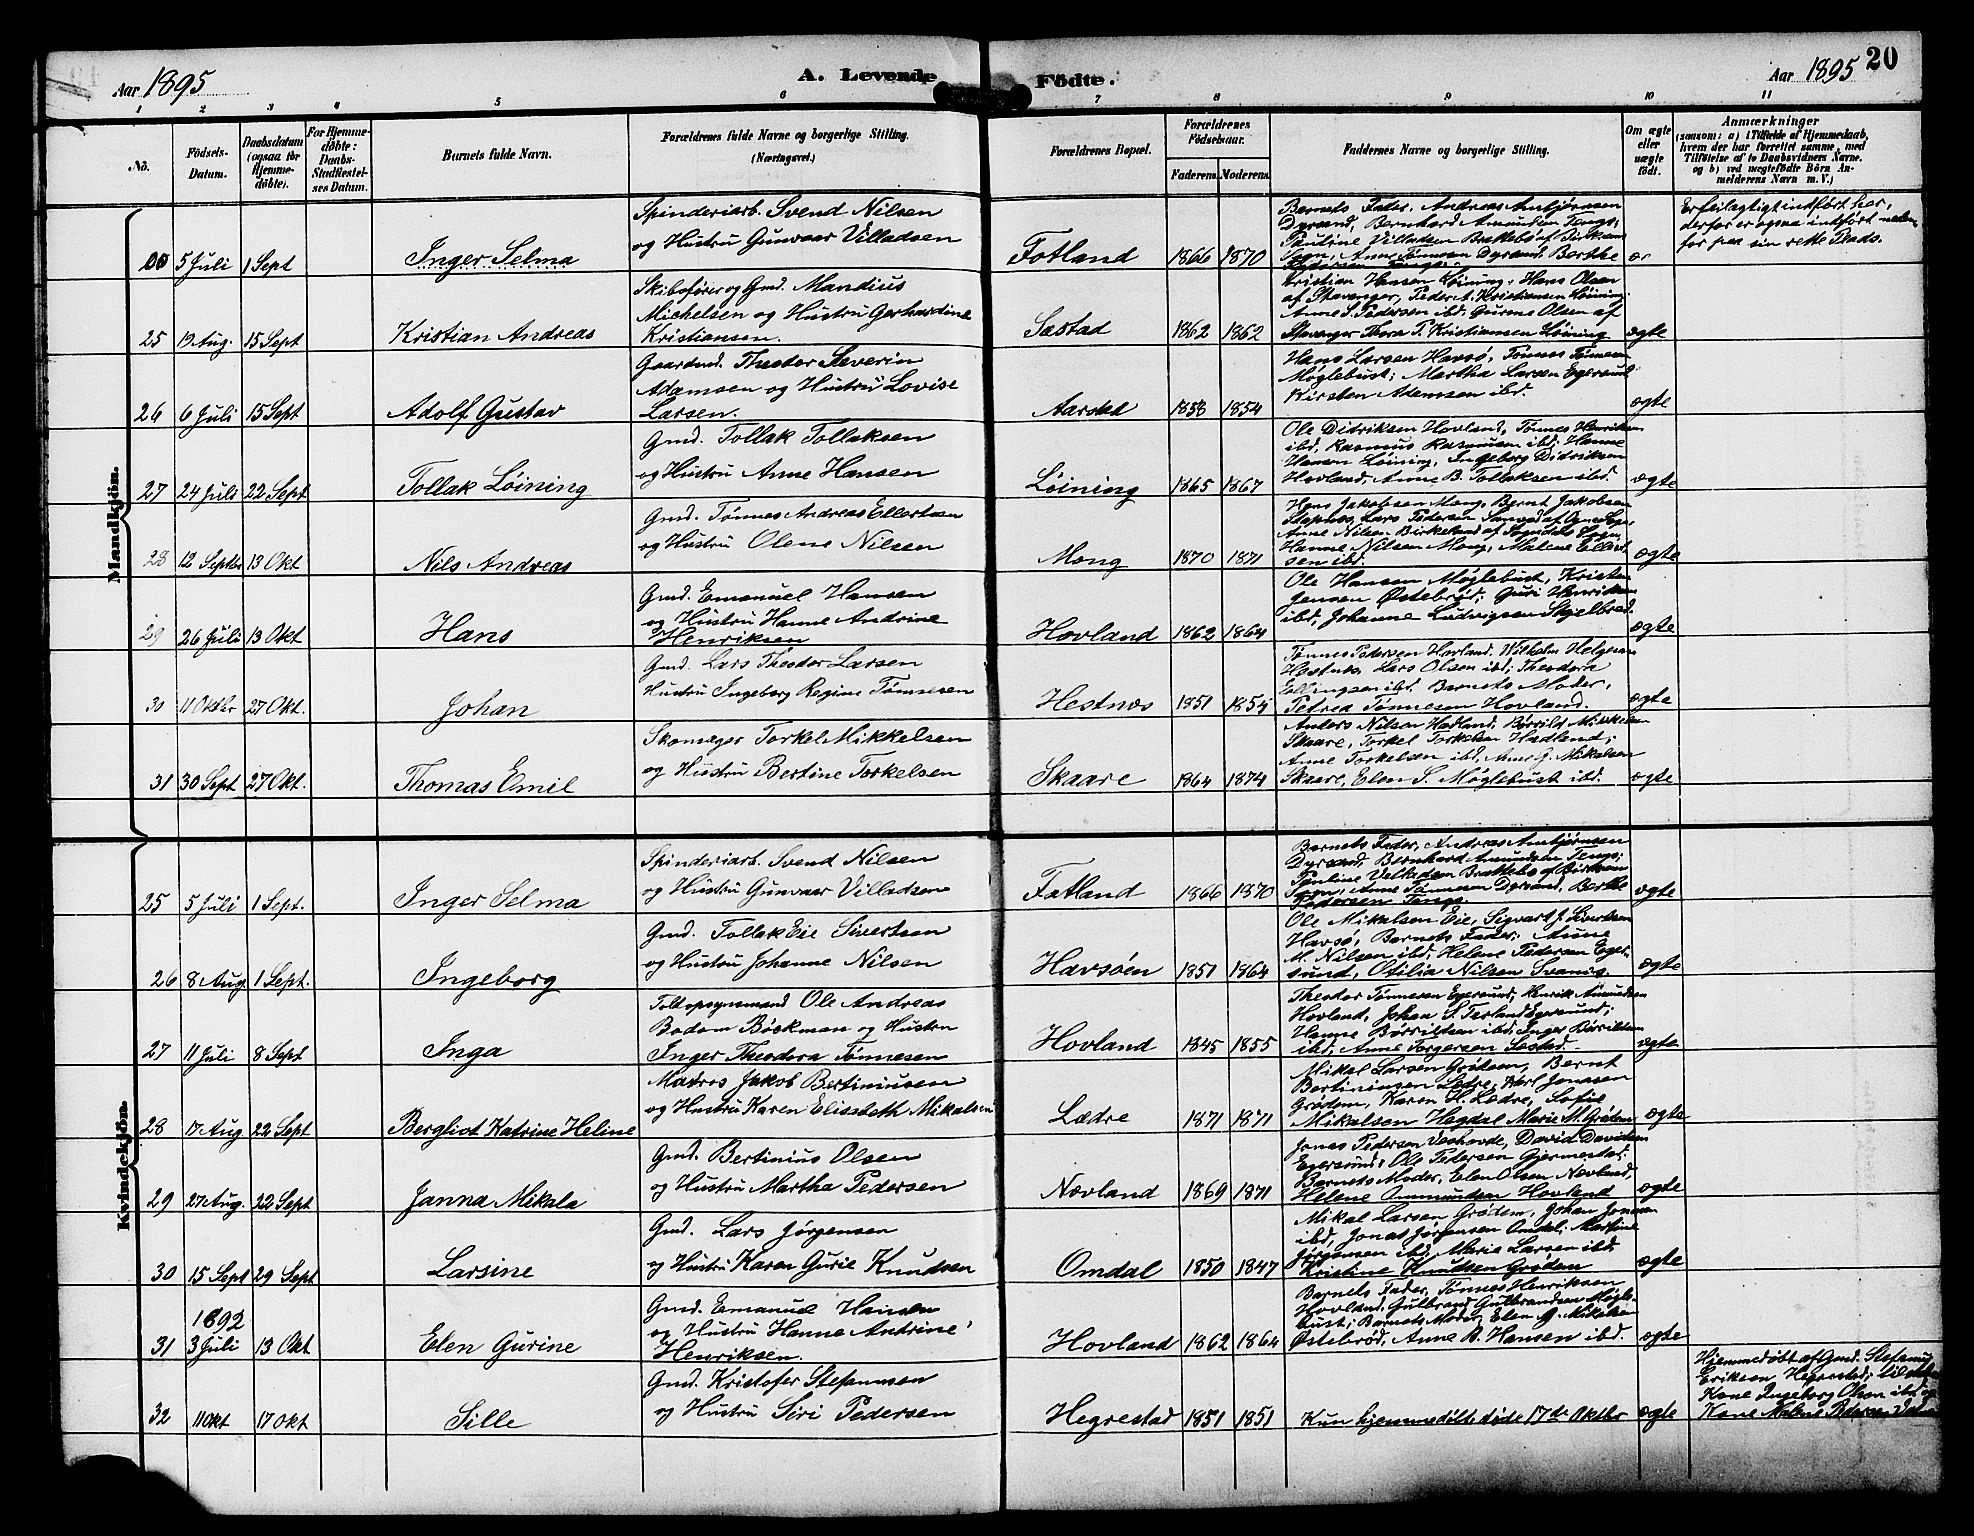 Aar 1895 A. Levende Födte. Aar 1895 20
1 2 3 4 5 6 7 8 9 10 11
No.
Födsels-Datum.
Daabsdatum (ogsaa for Hjemmedöbte).
For Hjemmedöbte: Daabs-Stadfæstelses Datum.
Barnets fulde Navn.
Forældrenes fulde Navne og borgerlige Stilling.
(Næringsvei.)
Forældrenes Bopæl.
Forældrenes Födselsaar.
Faderens. Moderens.
Faddernes Navne og borgerlige Stilling.
Om ægte eller uægte födt.
Anmærkninger
(saasom: a) i Tilfælde af Hjemmedaab,
hvem der har forrettet samme, med
Tilföielse af to Daabsvidners Navne,
og b) ved uægtefödte Börn An-
melderens Navn m. V.)
Mandkjön.
Spinderiarb. Svend Nilsen
og Hustru Gunvaar Villadsen
00 5 Juli 1 Sept Inger Selma Fotland 1866 1870
Barnets Fader, Andreas Arnbjørnsen
Dyrsand, Bernhard Amundsen Tengs,
Pauline Villadsen Brattebø af Birkrem
Sogn, Anne Tønnesen Dyrsand, Berthe
Pedersen Tengs.
Er feilagtigt indført her,
derfor er ogsaa indført neden
for paa sin rette Plads.
Skibsfører og Gmd. Mandius
Michelsen og Hustru Gerhardine
Kristiansen.
25 19 Aug. 15 Sept Kristian Andreas Sæstad 1862 1862
Kristian Hansen Løining, Hans Olsen
af Stavanger, Peder A. Kristiansen Løining
Anne S. Pedersen ibd. Gurine Olsen af
Stavanger Thora P. Kristiansen Løining
ægte
Gaardmd. Theodor Severin
Adamsen og Hustru Lovise
Larsen.
26 6 Juli 15 Sept Adolf Gustav Aarstad 1858 1854
Hans Larsen Havsø, Tønnes Tønnesen
Møglebust; Martha Larsen Egersund
Kirsten Adamsen ibd.
ægte
Gmd. Tollak Tollaksen
og Hustru Anne Hansen
27 24 Juli 22 Sept Tollak Løining Løining 1865 1867
Ole Didriksen Hovland, Tønnes Henriksen
ibd, Rasmus Rasmussen ibd, Hanne
Hansen Løining, Ingeborg Didriksen
Hovland, Anne B. Tollaksen ibd.
ægte
Gmd. Tønnes Andreas Ellertsen
og Hustru Olene Nilsen
28 12 Septbr 13 Okt Nils Andreas Mong 1870 1871
Hans Jakobsen Mong, Bernt Jakobsen
Stapnes, Lars Pedersen
Anne Nilsen Birkeland af Sogndals Sogn,
Hanne Nilsen Mong, Malene Ellert-
sen ibd.
ægte
Gmd. Emanuel Hansen
og Hustru Hanne Andrine
Henriksen
29 26 Juli 13 Okt Hans Hovland 1862 1864
Ole Hansen Møglebust, Kristen
Jensen Østebrød; Guri Henriksen
ibd, Johanne Ludvigsen
ægte
Gmd. Lars Theodor Larsen
Hustru Ingeborg Regine Tønnesen
30 11 Oktbr 27 Okt. Johan Hestnes 1851 1854
Tønnes Pedersen Hovland, Wilhelm Helgesen
Hestnes, Lars Olsen ibd; Theodora
Ellingsen ibd. Barnets Moder,
Petrea Tønnesen Hovland.
ægte
Skomager Torkel Mikkelsen
og Hustru Bertine Torkelsen
31 30 Sept 27 Okt. Thomas Emil Skaare 1864 1874
Anders Nilsen Hadland, Børrild Mikkelsen
Skaare, Torkel Torkelsen Hadland;
Anne Torkelsen ibd, Anne G. Mikalsen
Skaare, Elen S. Møglebust ibd.
ægte
Kvindekjön.
Spinderiarb. Svend Nilsen
og Hustru Gunvaar Villadsen
25 5 Juli 1 Sept. Inger Selma Fotland 1866 1870
Barnets Fader, Andreas Arnbjørnsen
Dyrsand, Bernhard Amundsen Tengs;
Pauline Villadsen Brattebø af Birkrem
Sogn, Anne Tønnesen Dyrsand, Berthe
Pedersen Tengs.
ægte
Gmd. Tollak Eie Sivertsen
og Hustru Johanne Nilsen
26 8 Aug. 1 Sept. Ingeborg Havsøen 1851 1864
Ole Mikalsen Eie, Sigvart J. Sivertsen
Havsø, Barnets Fader; Anne
M. Nilsen ibd, Helene Pedersen Eger-
sund, Otilia Nilsen Svanes.
ægte
Toldopsynsmand Ole Andreas
Bodom Böckman og Hustru
Inger Theodora Tønnesen
27 11 Juli 8 Sept Inga Hovland 1845 1855
Theodor Tønnesen Egersund, Henrik Amundsen
Hovland, Johan S. Terland Egersund;
Hanne Børrildsen ibd, Inger Børrildsen
ibd, Anne Torgersen Sæstad.
ægte
Matros Jakob Bertiniusen
og Hustru Karen Elisabeth Mikalsen
28 17 Aug 22 Sept Bergliot Katrine Heline Lædre 1871 1871
Mikal Larsen Grødem, Bernt
Bertiniusen Lædre, Karl Jonassen
Grødem, Karen H. Lædre, Sofie
Mikalsen Hegdal Marie M. Grødem
ægte
Gmd. Bertinius Olsen
og Hustru Martha Pedersen
29 27 Aug. 22 Sept Janna Mikala Nævland 1869 1871
Jonas Pedersen Veshovde, David Davidsen
Egersund, Ole Pedersen Gjermestad.
Barnets Moder, Elen Olsen Nævland,
Helene Ommundsen Hovland
ægte
Gmd. Lars Jørgensen
og Hustru Karen Gurie Knudsen
30 15 Sept 29 Sept Larsine Omdal 1850 1847
Mikal Larsen Grødem, Johan Jonassen
ibd, Jonas Jørgensen Omdal, Martine
Jørgensen ibd, Marie Larsen ibd.
Kristine Knudsen Grødem
ægte
Gmd. Emanuel Hansen
og Hustru Hanne Andrine
Henriksen.
1892
31 3 Juli 13 Okt Elen Gurine Hovland 1862 1864
Barnets Fader, Tønnes Henriksen
Hovland, Gulbrand Gulbrandsen Møgle-
bust; Barnets Moder, Elen M. Mikalsen
Østebrød, Anne B. Hansen ibd.
ægte
Gmd. Kristofer Stefansen
og Hustru Siri Pedersen
32 11 Okt 17 Okt Sille Hegrestad 1851 1851
Kun hjemmedøbt døde 17de Oktbr ægte
Hjemmedøbt af Gmd. Stefanus
Eriksen Hegrestad;
Kone Ingeborg Olsen ibd og
Kone Malene Pedersen